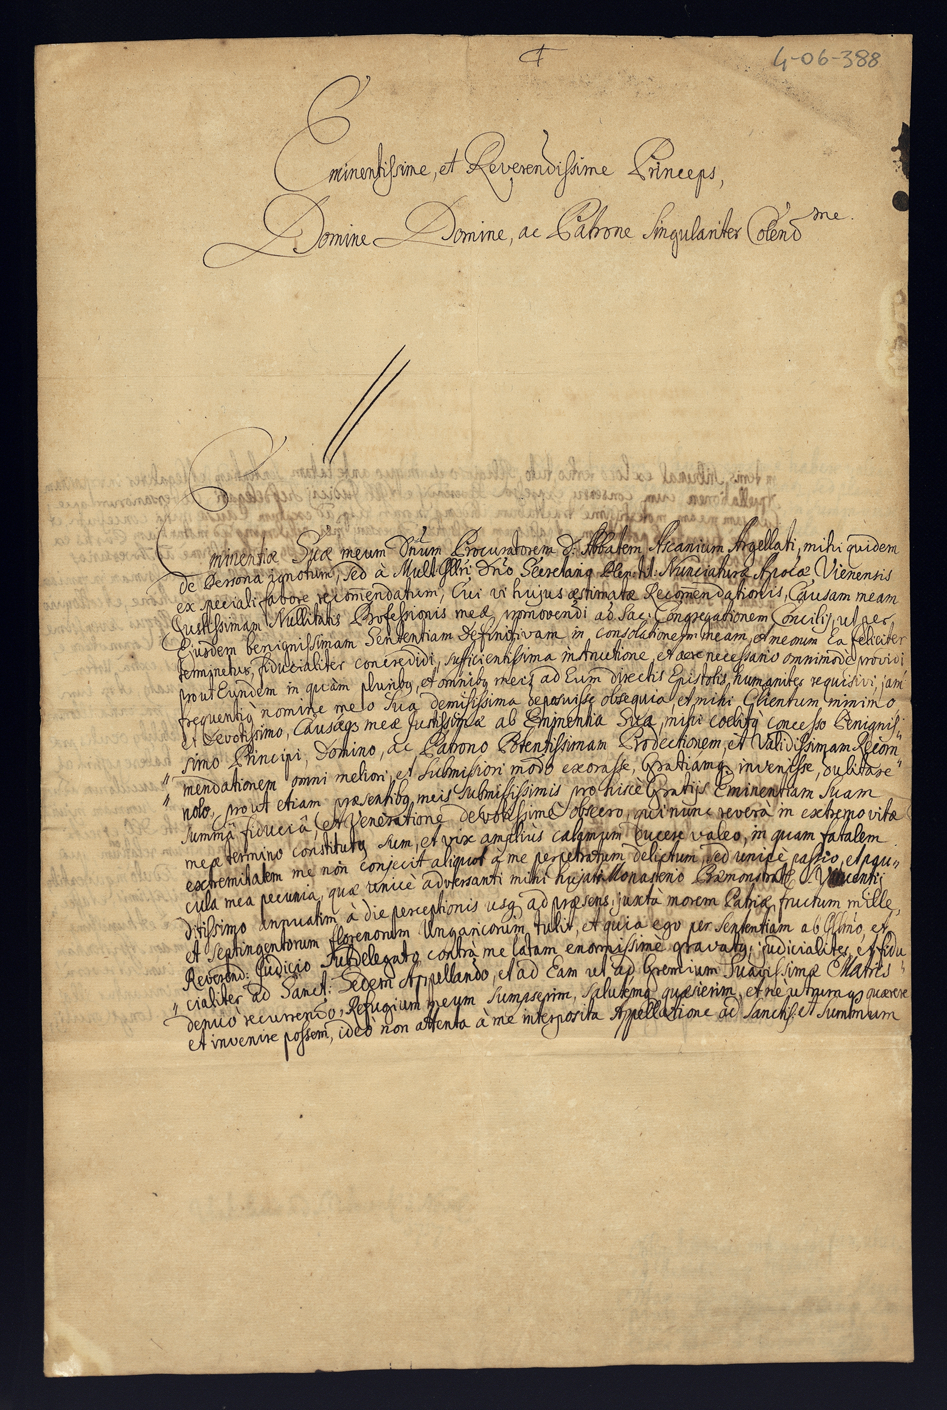 4-06-388
Eminentissime, et Reverendissime Princeps,
Domine Domine, ac Patrone Singulariter Colend me.
Eminentiæ Suæ meum Dnum Procuratorem D: Abbatem Ascanium Argellati, mihi quidem
de Persona ignotum, sed à Mult Illri Dno Secretario Nunciaturæ Viennensis
ex speciali favore recomendatum, Cui vi hujus æstimatæ Recomendationis, Causam meam
Justissimam Nullitatis Professionis meæ, promovendi ad Sac: Congregationem Concilij, ut per
Ejusdem benignissimam Sententiam Definitivam in consolationem meam, et meorum Ea feliciter
terminetur, fiducialiter concredidi, sufficientissima instructione et aere necessario omnimodè providi
prout Eundem in quàm pluribq, et omnibq meis ad Eum directis Epistolis, humaniter requisivi, jam
frequentiq nomine meo Sua demisissima deposuisse obsequia, et mihi Clienti minimo
et devotissimo, Causæq meæ justissimæ ab Eminentia Sua, mihi coelitq concesso Benignis-
simo Principi, Domino, ac Patrono Potentissimam Protectionem, et Validissimam Recom
mendationem omni meliori, et submissiori modo exorasse, Gratiamq invenisse, dubitare
nolo, prout etiam præsentibq meis submississimis pro hisce Gratijs Eminentiam Suam
summâ fiduciâ, et Veneratione devotissimè obsecro, qui nunc reverà in extremo vitæ
meæ termino constitutq sum, et vix amplius calamum ducere valeo, in quam fatalem
extremitatem me non conjecit aliquod à me perpetratum delictum, sed unicè passio, et pecu-
cula mea pecunia, quæ unicè adversanti mihi hujati Monasterio Præmonstrat: S. Vincentij
ditissimo annuatim à die perceptionis usq ad præsens, juxtà morem Patriæ, fructum mille,
et Septingentorum florenorum Ungaricorum tulit, et quia ego per Sententiam ab Illmo, et
Reverend: Judicio Subdelegato contrà me latam enormissimè gravatq, judicialiter, et fidu
cialiter ad Sanct: Sedem Appellando, et ad Eam ut ad Gremium Suavissimæ Matris
denuò recurrendo, Refugium meum sumpserim, salutemq quæsierim, et nè utrumqs quærere
et invenire possem, ideò non attenta à me interposita Appellatione ad Sanctiss: et Summum